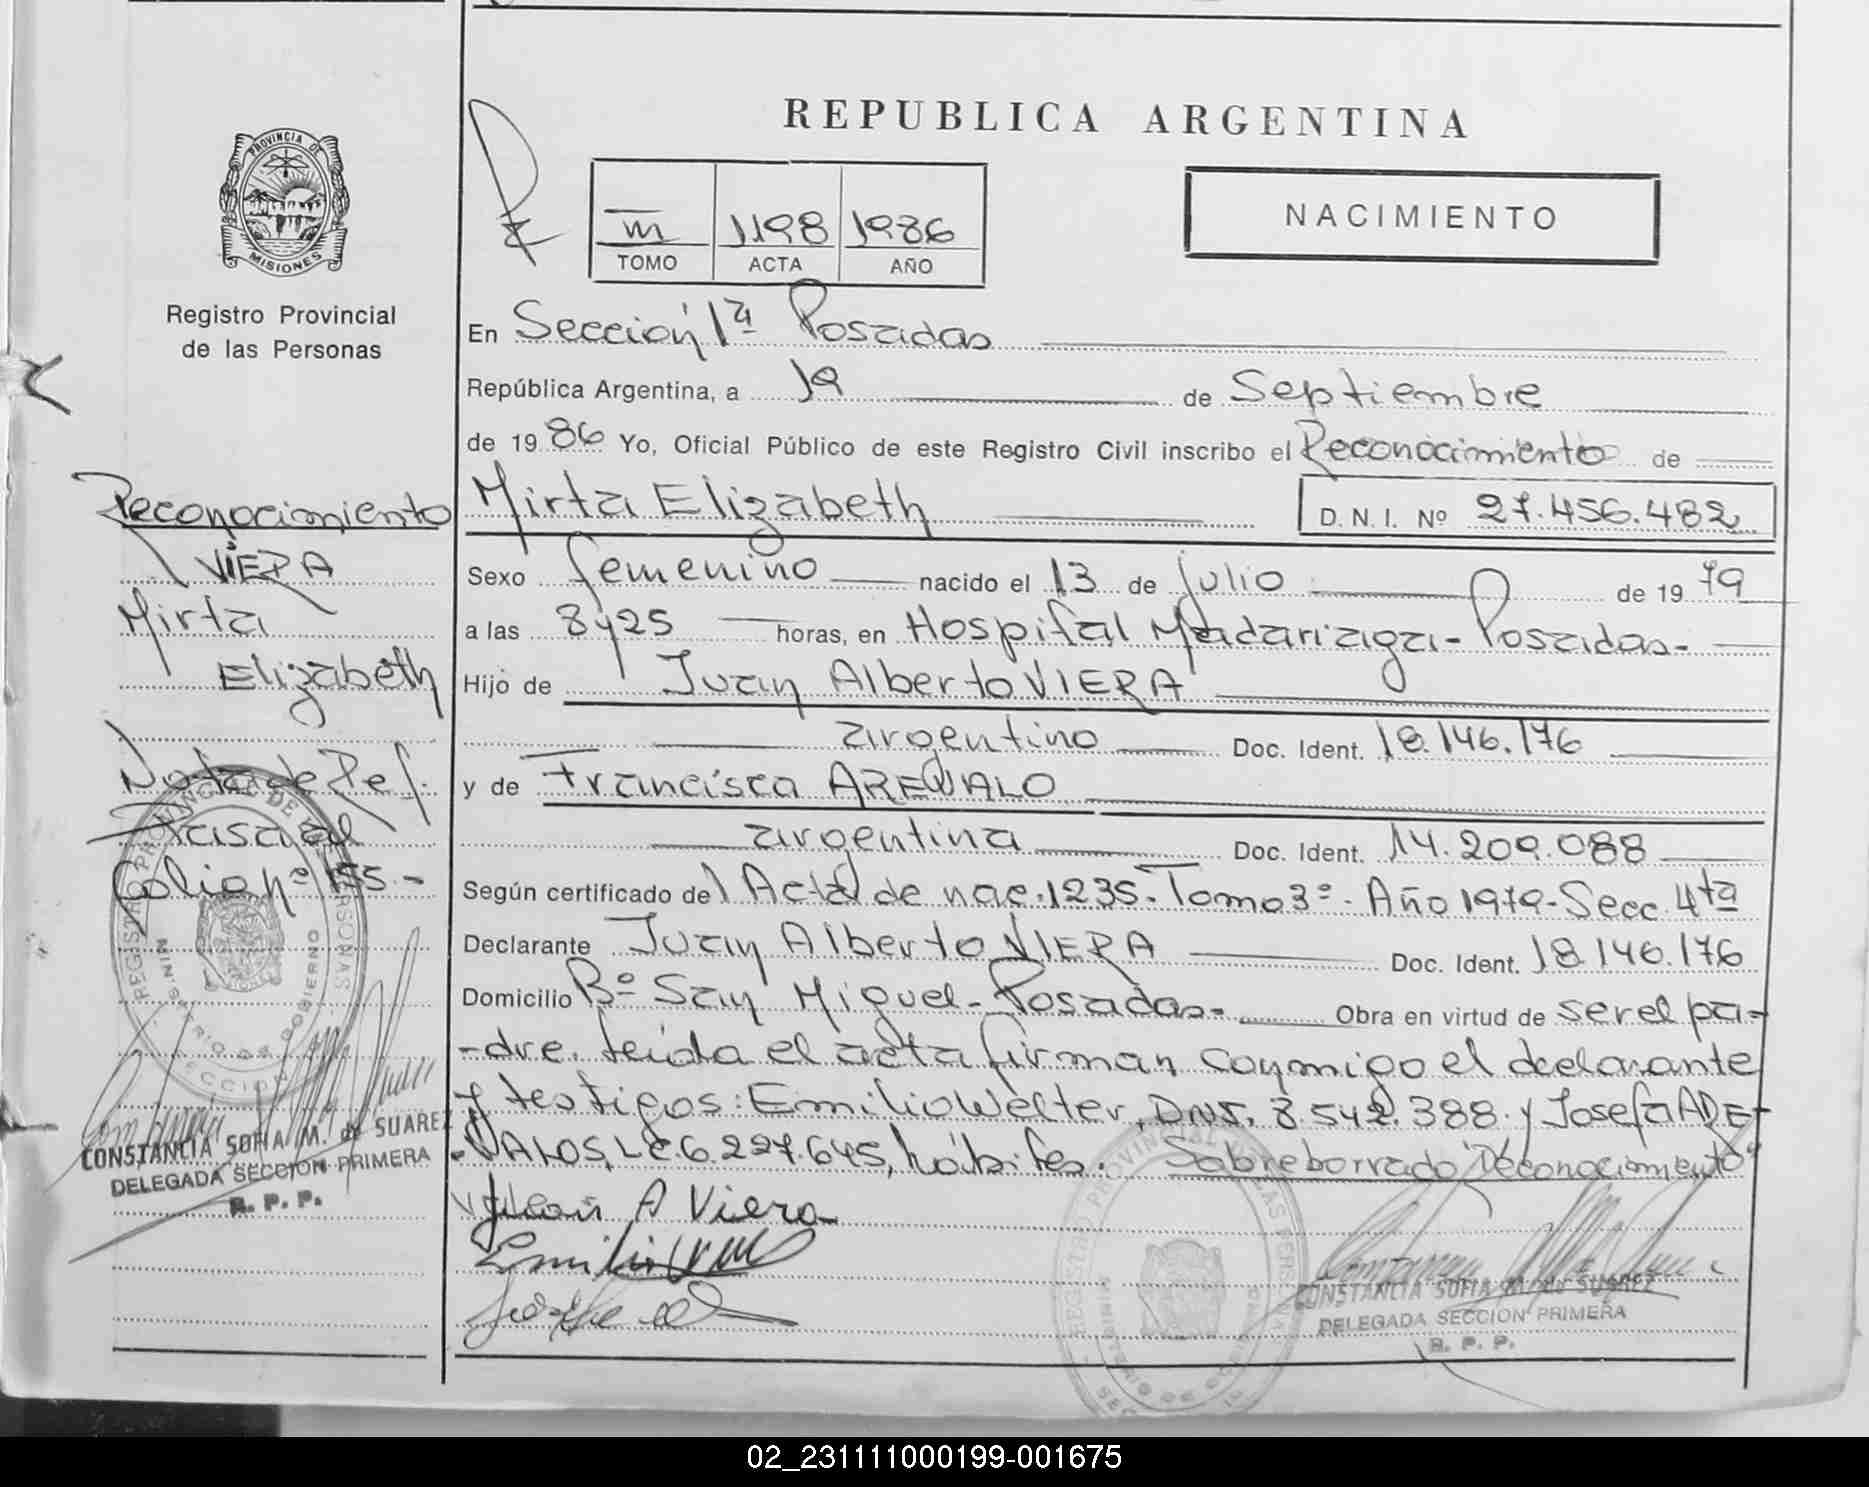 REPUBLICA ARGENTINA
PROVINCIA DE MISIONES
Registro Provincial
de las Personas
III 1198 1986
TOMO ACTA AÑO
NACIMIENTO
En Sección 1ª Posadas
República Argentina, a 19 de Septiembre
de 1986 Yo, Oficial Público de este Registro Civil inscribo el Reconocimiento de
Mirta Elizabeth D.N.I. Nº 27.456.482
Sexo femenino nacido el 13 de julio de 1979
a las 8 y 25 horas, en Hospital Madariaga - Posadas -
Hijo de Juan Alberto VIERA
argentino Doc. Ident. 18.146.176
y de Francisca AREVALO
argentina Doc. Ident. 14.209.088
Según certificado de Acta de nac. 1235 - Tomo 3º - Año 1979 - Secc. 4ta
Declarante Juan Alberto VIERA Doc. Ident. 18.146.176
Domicilio Bº San Miguel - Posadas - Obra en virtud de ser el pa-
-dre. leída el acta firman conmigo el declarante
y testigos: Emilio Welter, DNI. 8.542.388 y Josefa ARE-
-VALOS, LC 6.227.645, hábiles. Sobreborrado "Reconocimiento"
Juan A Viera
Emilio
CONSTANCIA SOFIA M. de SUAREZ
DELEGADA SECCION PRIMERA
R. P. P.
Reconocimiento
VIERA
Mirta
Elizabeth
Nota de Ref.
Folio nº 155.-
REGISTRO PROVINCIAL DE LAS PERSONAS
MINISTERIO DE GOBIERNO
CONSTANCIA SOFIA M. de SUAREZ
DELEGADA SECCION PRIMERA
R. P. P.
02_231111000199-001675